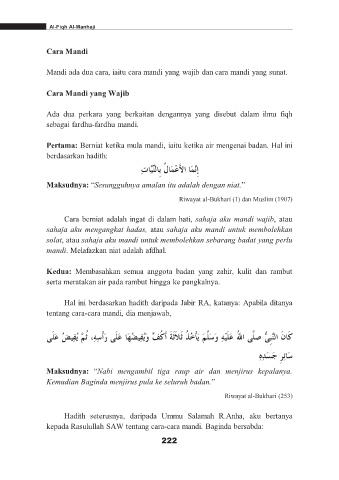 Al-Fiqh Al-Manhaji
Cara Mandi
Mandi ada dua cara, iaitu cara mandi yang wajib dan cara mandi yang sunat.
Cara Mandi yang Wajib
Ada dua perkara yang berkaitan dengannya yang disebut dalam ilmu fiqh
sebagai fardha-fardha mandi.
Pertama: Berniat ketika mula mandi, iaitu ketika air mengenai badan. Hal ini
berdasarkan hadith:
إِنَّمَا الأَعْمَالُ بِالنِّيَّاتِ
Maksudnya: “Sesungguhnya amalan itu adalah dengan niat.”
Riwayat al-Bukhari (1) dan Muslim (1907)
Cara berniat adalah ingat di dalam hati, sahaja aku mandi wajib, atau
sahaja aku mengangkat hadas, atau sahaja aku mandi untuk membolehkan
solat, atau sahaja aku mandi untuk membolehkan sebarang badat yang perlu
mandi. Melafazkan niat adalah afdhal.
Kedua: Membasahkan semua anggota badan yang zahir, kulit dan rambut
serta meratakan air pada rambut hingga ke pangkalnya.
Hal ini berdasarkan hadith daripada Jabir RA, katanya: Apabila ditanya
tentang cara-cara mandi, dia menjawab,
كَانَ النَّبِيُّ صلَّى اللهُ عَلَيْهِ وَسَلَّمَ يَأْخُذُ ثَلَاثَةَ أَكُفٍّ وَيُفِيضُهَا عَلَى رَأْسِهِ، ثُمَّ يُفِيضُ عَلَى
سَائِرِ جَسَدِهِ
Maksudnya: “Nabi mengambil tiga raup air dan menjirus kepalanya.
Kemudian Baginda menjirus pula ke seluruh badan.”
Riwayat al-Bukhari (253)
Hadith seterusnya, daripada Ummu Salamah R.Anha, aku bertanya
kepada Rasulullah SAW tentang cara-cara mandi. Baginda bersabda:
222